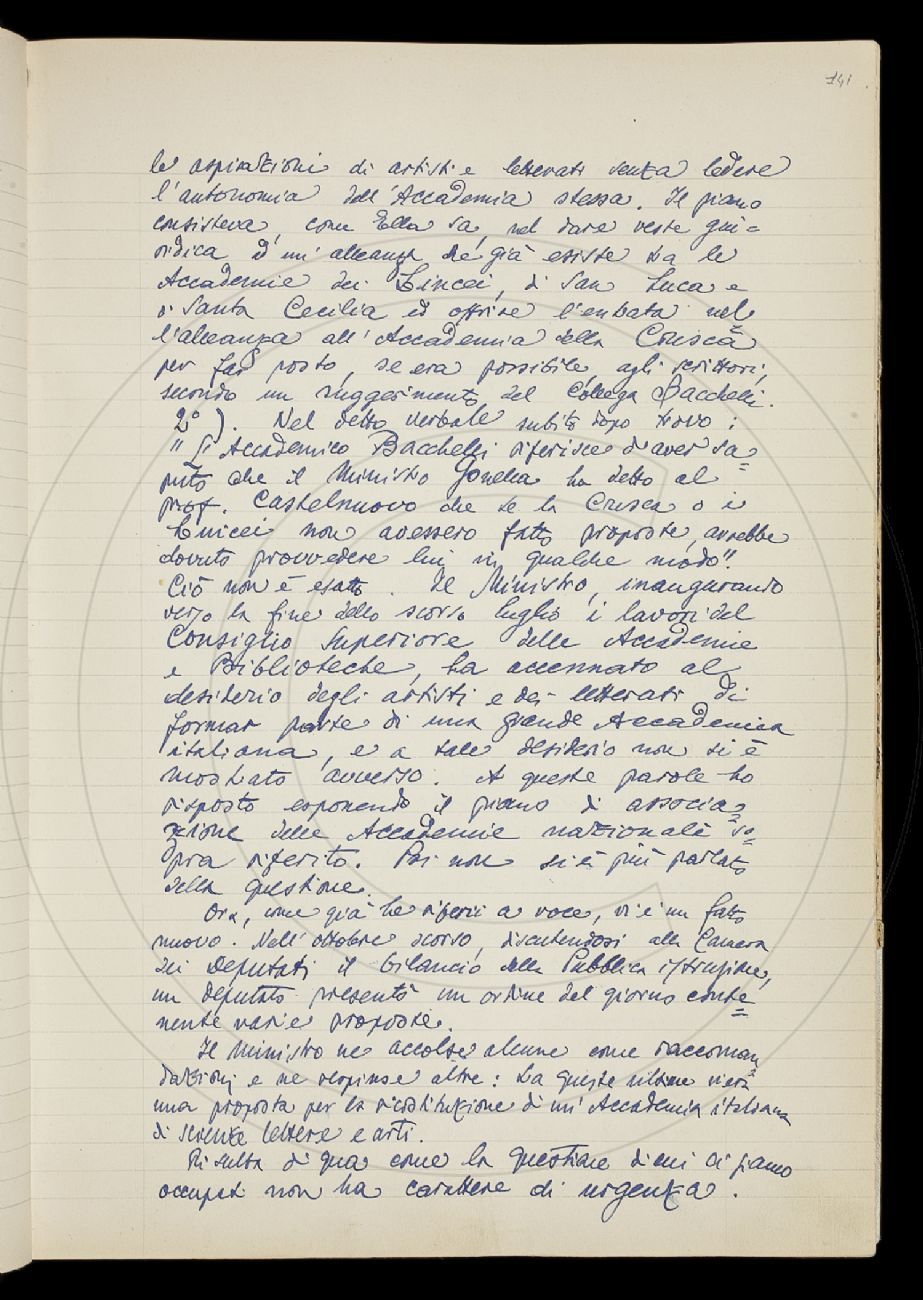 141
le aspirazioni di artisti e letterati senza ledere
l'autonomia dell'Accademia stessa. Il piano
consisteva, come Ella sa, nel dare veste giu=
ridica ad un'alleanza che già esiste tra le
Accademie dei Lincei, di San Luca e
di Santa Cecilia ed offrire l'entrata nel
l'alleanza all'Accademia della Crusca
per far posto, se era possibile, agli scrittori,
secondo un suggerimento del Collega Bacchelli.
2°). Nel detto verbale subito dopo trovo:
"L'Accademico Bacchelli riferisce d'aver sa=
puto che il Ministro Gonella ha detto al
prof. Castelnuovo che se la Crusca o i
Lincei non avessero fatto proposte, avrebbe
dovuto provvedere lui in qualche modo".
Ciò non è esatto. Il Ministro, inaugurando
verso la fine dello scorso luglio i lavori del
Consiglio Superiore delle Accademie
e Biblioteche, ha accennato al
desiderio degli artisti e dei letterati di
formar parte di una grande Accademia
italiana, e a tale desiderio non si è
mostrato avverso. A queste parole ho
risposto esponendo il piano di associa=
zione delle Accademie nazionali so=
pra riferito. Poi non si è più parlato
della questione.
Ora, come già Le riferii a voce, vi è un fatto
nuovo. Nell'ottobre scorso, discutendosi alla Camera
dei Deputati il bilancio della Pubblica istruzione,
un deputato presentò un ordine del giorno conte=
nente varie proposte.
Il Ministro ne accolse alcune come raccoman=
dazioni e ne respinse altre: tra queste ultime
una proposta per la ricostituzione di un'Accademia italiana
di scienze lettere e arti.
Risulta di qua come la questione di cui ci siamo
occupati non ha carattere di urgenza.